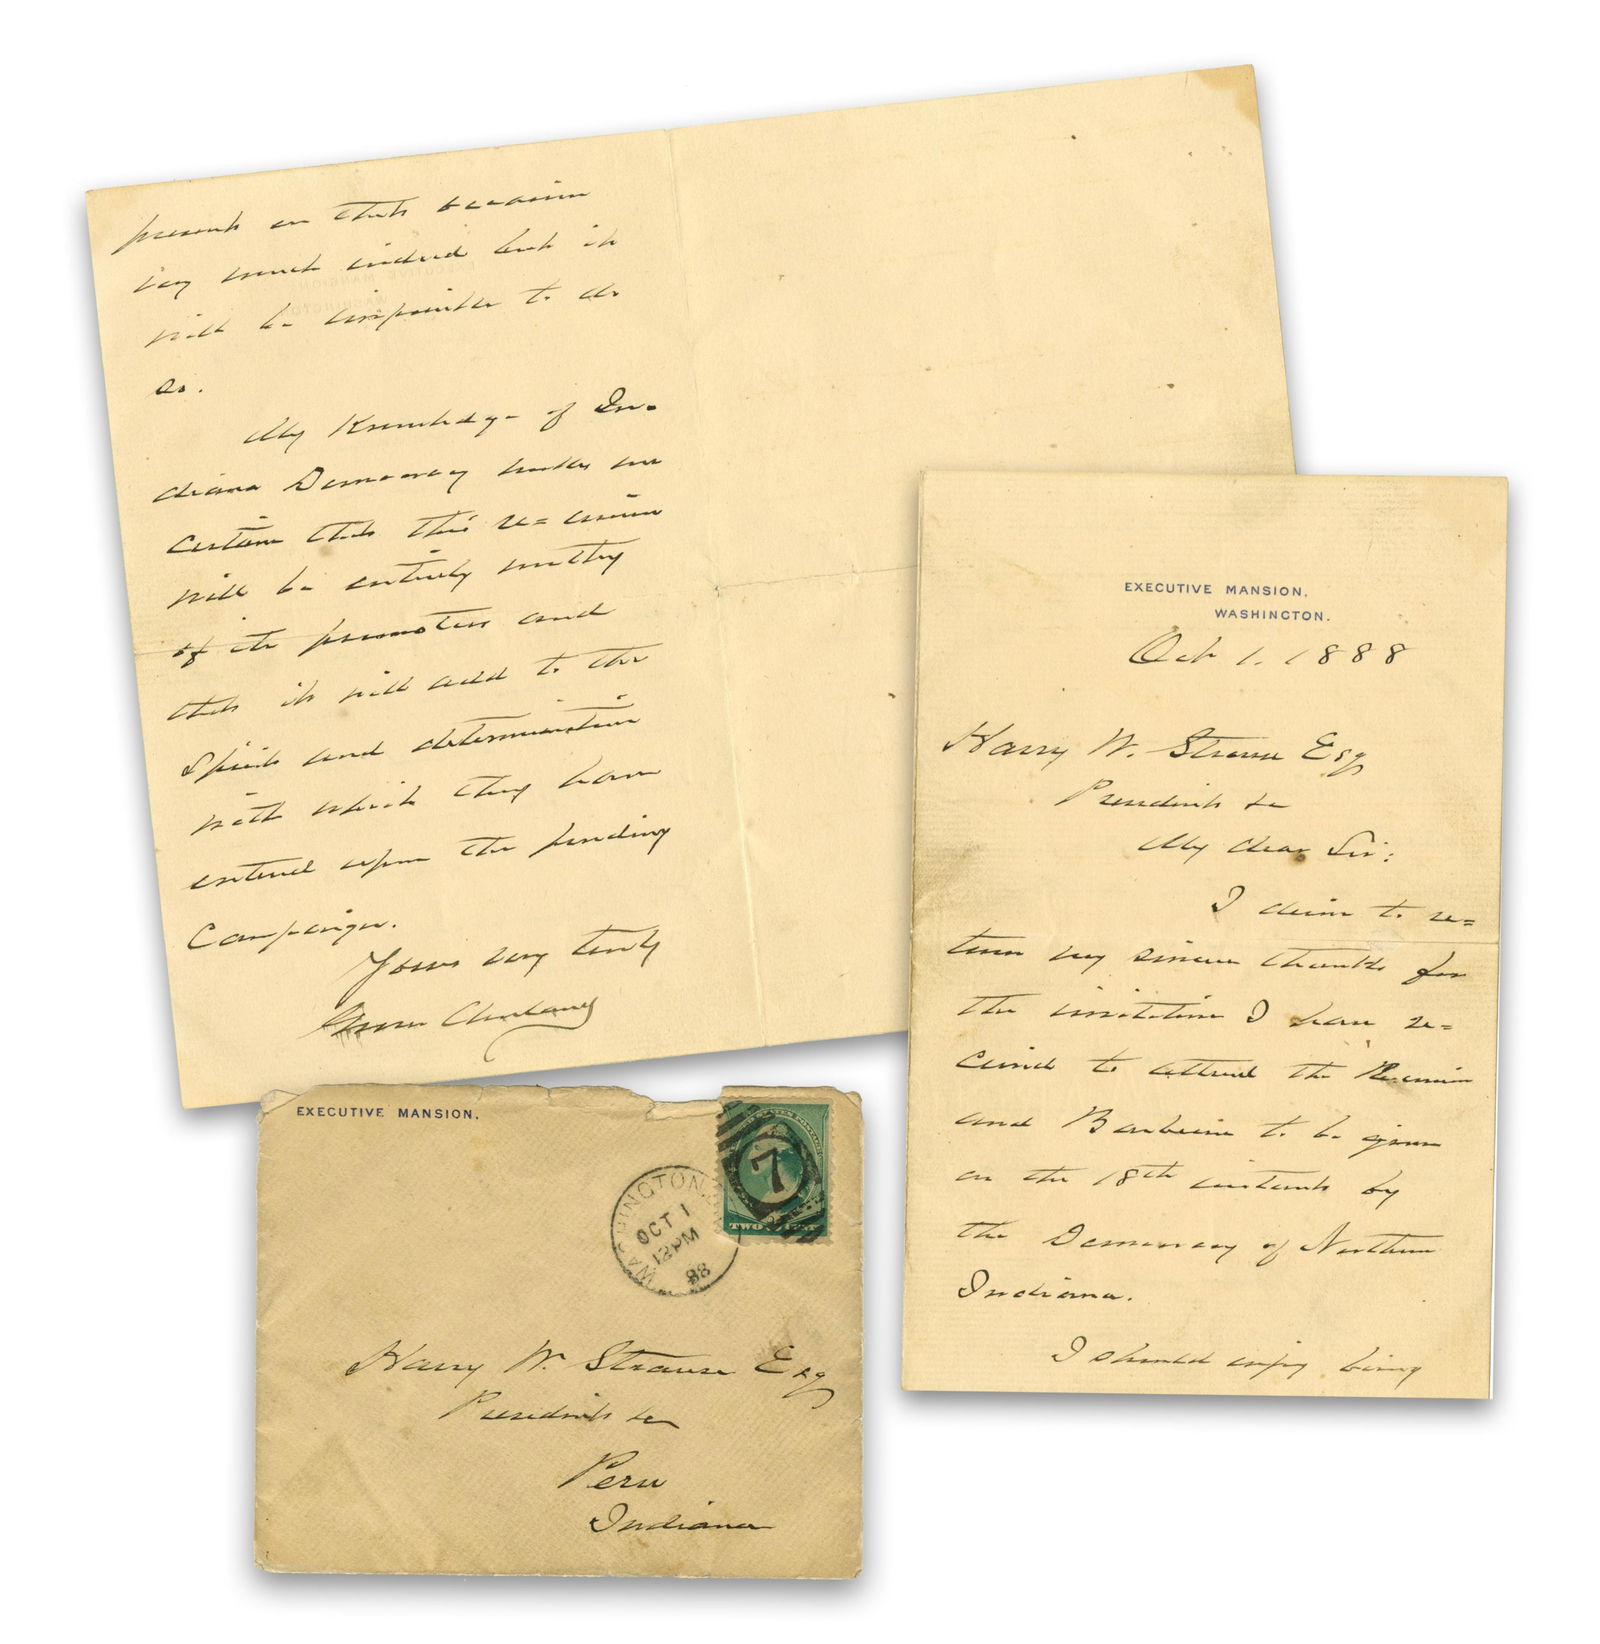 EXECUTIVE MANSION.
WASHINGTON.
Oct 1. 1888
Harry W. Strouse Esq
President &c
My dear Sir:
I desire to re=
turn my sincere thanks for
the invitation I have re=
ceived to attend the Reunion
and Barbecue to be given
on the 18th instant by
the Democracy of Northern
Indiana.
I should enjoy being
present on that occasion
very much indeed but it
will be impossible to do
so.
My Knowledge of In-
diana Democracy makes me
certain that this re=union
will be entirely worthy
of its promoters and
that it will add to the
Spirit and determination
with which they have
entered upon the pending
Campaign.
Yours very truly
Grover Cleveland
EXECUTIVE MANSION.
WASHINGTON, D.C.
OCT 1
12PM
88
7
UNITED STATES POSTAGE
TWO CENTS
Harry W. Strouse Esq
President &c
Peru
Indiana